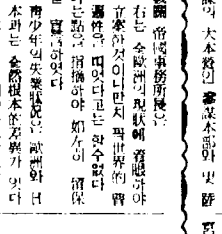 大本營인 參謀本部와 및 陸
帝國事務所長은
右는 全歐洲의現狀에 着眼하야
立案한것이니만치 世界的 普
遍性을 띄엇다고는 할수없다
라는 點을 指摘하야 如左히 留保
를 宣言하엿다
靑少年의失業狀況은 歐洲와 日
本과는 全然根本的差異가 잇다